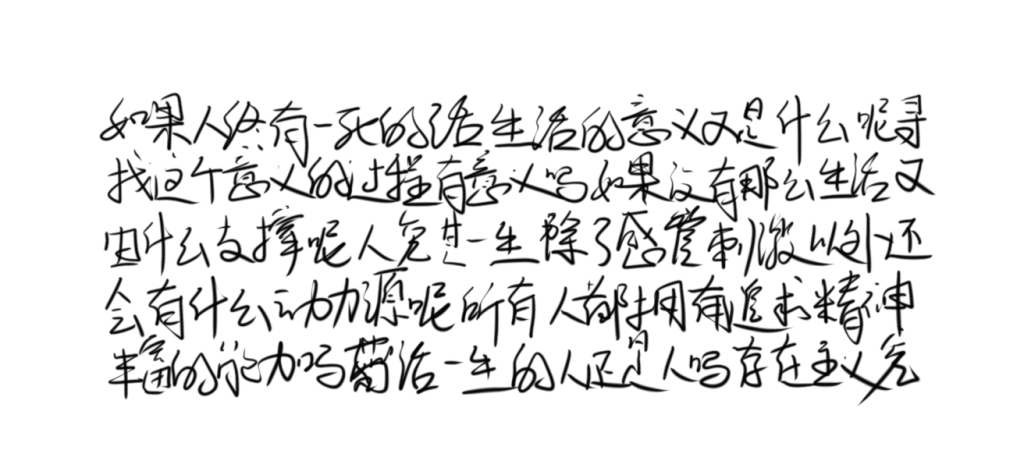 如果人终有一死的话生活的意义又是什么呢寻
找这个意义的过程有意义吗如果没有那么生活又
由什么支撑呢人穷其一生除了感官刺激以外还
会有什么动力源呢所有人都拥有追求精神
丰富的能力吗苟活一生的人还是人吗存在主义